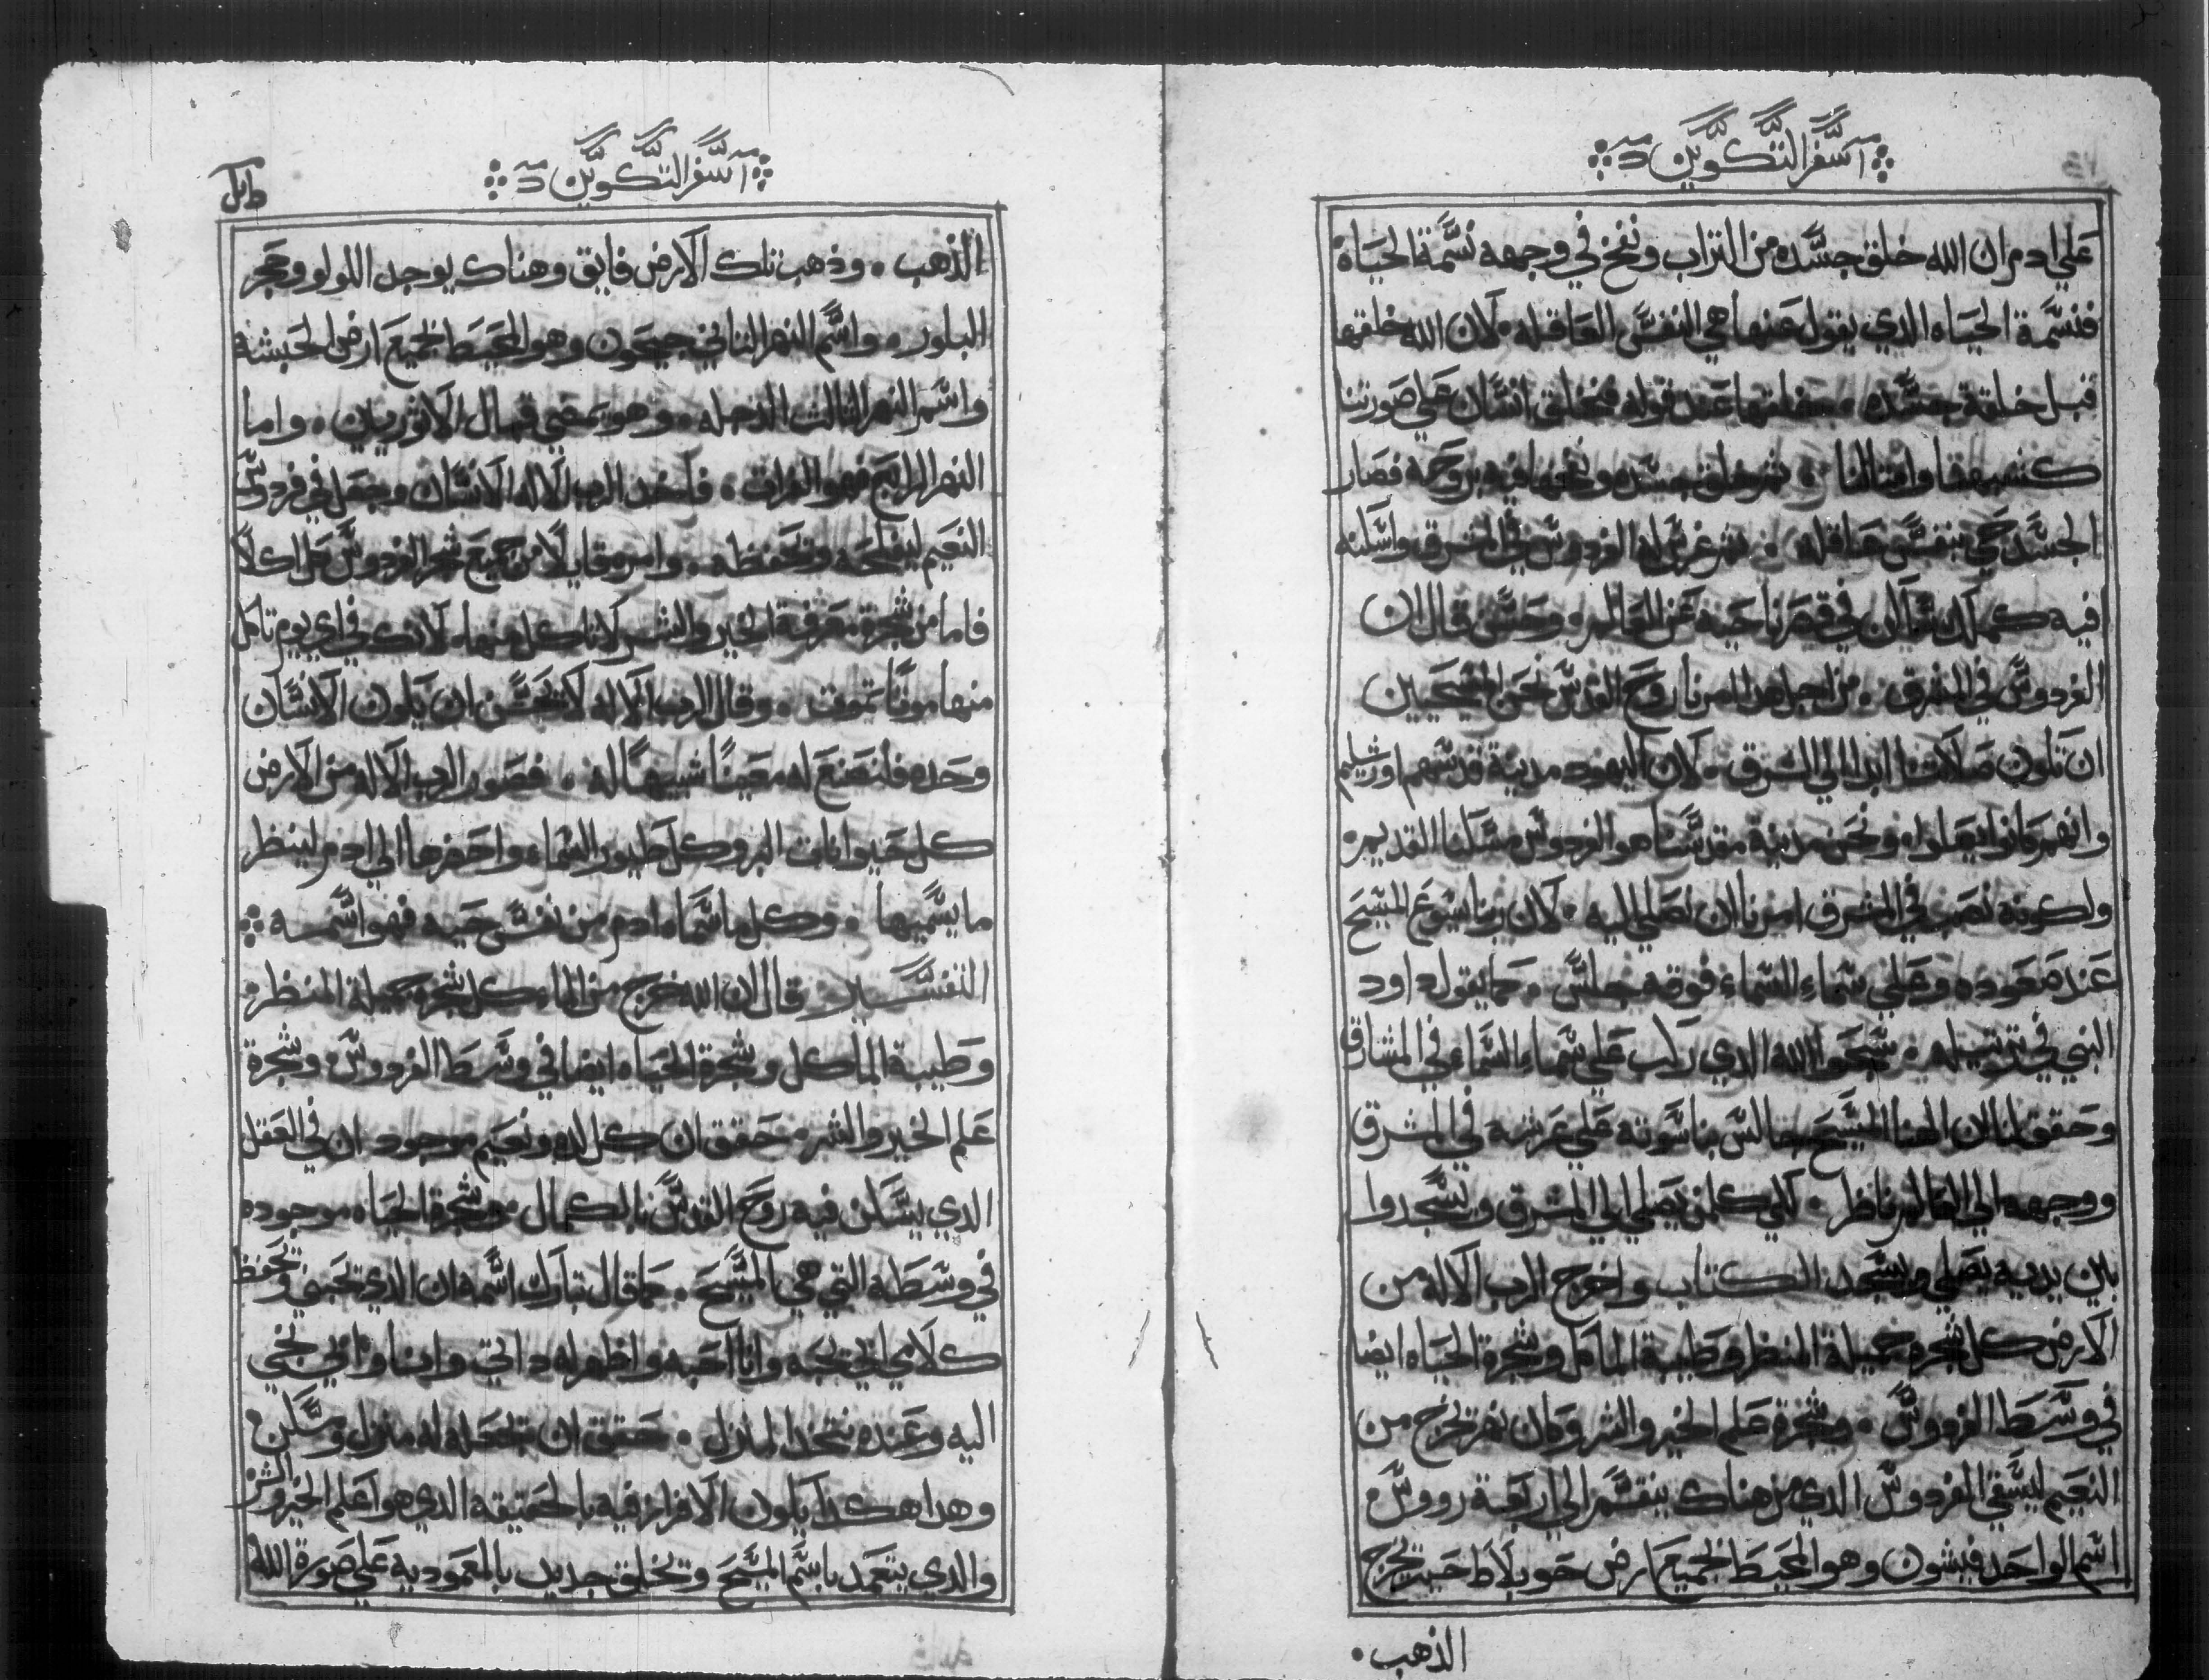 سفر التكوين
علي ادم ان الله خلق جسده من التراب ونفخ في وجهه نسمة الحياة
فنسمة الحياه الدي يقول عنها هي النفس العاقله ۰ لان الله خلقها
قبل خلقة جسده ۰ عند قوله فنخلق انسان علي صورتنا
كشبهنا ومثالنا ۰ ثم خلق جسده ونفخها فيه بروحه فصار
الجسد حي بنفس عاقله ۰ ثم غرس له الفردوس في المشرق واسكنه
فيه ناحيه عن العالم ۰ وحتي قال ان
الفردوس في المشرق ۰ من اجل هدا امرنا روح القدس نحن المسيحيين
ان تكون صلاتنا ابدا الي الشرق ۰ لان اليهود مدينة قدسهم اورشليم
وانهم كانوا يصلوا ۰ ونحن مدينة مقدسنا هو الفردوس مسكنا القديم ۰
ولكونه نصب في المشرق امرنا ان نصلي اليه ۰ لان ربنا يسوع المسيح
عند صعوده وعلي سماء السماء فوقه جلس ۰ كما يقول داود
النبي في ترتيله ۰ سبحوا الله الدي ركب علي سماء السماء في المشارق
وحقق لنا ان الهنا المسيح جالس بناسوته علي عرشه في المشرق
ووجهه الي العالم ناظر ۰ لكي كلمن يصلي الي المشرق ويسجدوا
بين يديه يصلي ويسجد الكتاب واخرج الرب الاله من
الارض كل شجره جميلة المنظر وطيبة الماكل وشجرة الحياه ايضا
في وسط الفردوس ۰ وشجرة علم الخير والشر وكان نهر يخرج من
النعيم ليسقي الفردوس الدي من هناك ينقسم الي اربعة رووس ۰
اسم الواحد فيشون وهو المحيط لجميع ارض حويلاط حيث يخرج
الذهب ۰
سفر التكوين
الذهب ۰ وذهب تلك الارض فايق وهناك يوجد اللولو وحجر
البلور ۰ واسم النهر الثاني جيحون وهو المحيط لجميع ارض الحبشه
واسم النهر الثالث الدجله ۰ وهو يمضي قبال الاثوريين ۰ واما
النهر الرابع فهو الفرات ۰ فاخد الرب الاله الانسان وجعل في فردوس
النعيم ليفلحه ويحفظه ۰ وامره قايلا من جميع شجر الفردوس كل اكلا
فاما من شجرة معرفة الخير والشر لا تاكل منها ۰ لانك في اي يوم تاكل
منها موتا تموت ۰ وقال الرب الاله لا يحسن ان يكون الانسان
وحده فلنصنع له معينا شبيها له ۰ فصور الرب الاله من الارض
كل حيوانات البر وكل طيور السماء واحضرها الي ادم لينظر
ما يسميها ۰ وكل ما سماه ادم من نفس حيه فهو اسمه
التفسير قال ان الله خرج من الماء كل شجره جميلة المنظر ۰
وطيبة الماكل وشجرة الحياه ايضا في وسط الفردوس ۰ وشجرة
علم الخير والشر ۰ حقق ان كل لده ونعيم موجود ان في العقل
الدي يسكن فيه روح القدس بالكمال ۰ وشجرة الحياه موجوده
في وسطه التي هي المسيح ۰ كما قال تبارك اسمه ان الدي يحبني ويحفظ
كلامي ابي يحبه وانا احبه واظهر له داتي وانا وابي نجي
اليه وعنده نتخد المنزل ۰ حقق ان له منزل ومسكن ۰
وهدا هكدا يكون الافراز فيه بالحقيقه الدي هو اعلم الخير والشر
والدي يتعمد باسم المسيح وتخلق جديد بالمعموديه علي صورة الله